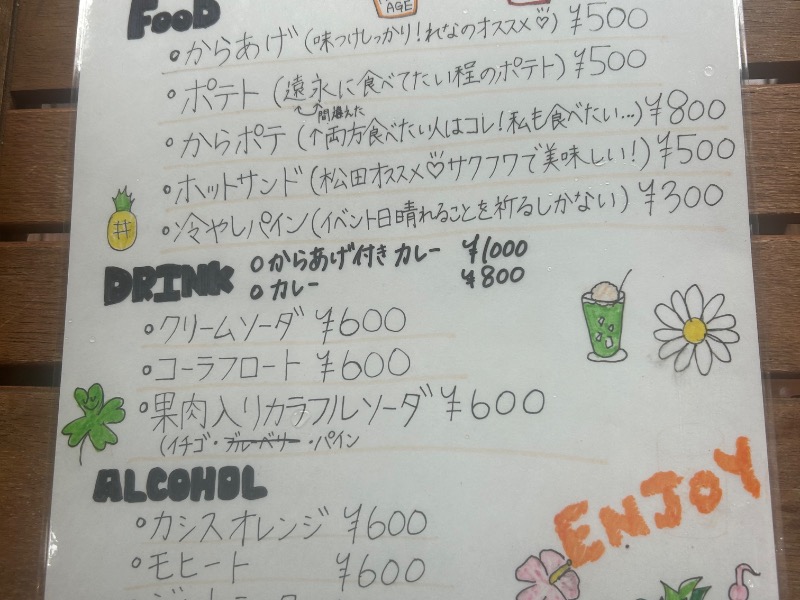 AGE
FOOD
からあげ(味つけしっかり!れなのオススメ♡) ¥500
ポテト(遠永に食べてたい程のポテト) ¥500
間違えた
からポテ(↑両方食べたい人はコレ!私も食べたい…) ¥800
ホットサンド(松田オススメ♡サクフワで美味しい!) ¥500
冷やしパイン(イベント日晴れることを祈るしかない) ¥300
からあげ付きカレー ¥1000
カレー ¥800
DRINK
クリームソーダ ¥600
コーラフロート ¥600
果肉入りカラフルソーダ ¥600
(イチゴ・ブルーベリー・パイン
ALCOHOL
カシスオレンジ ¥600
モヒート ¥600
ENJOY